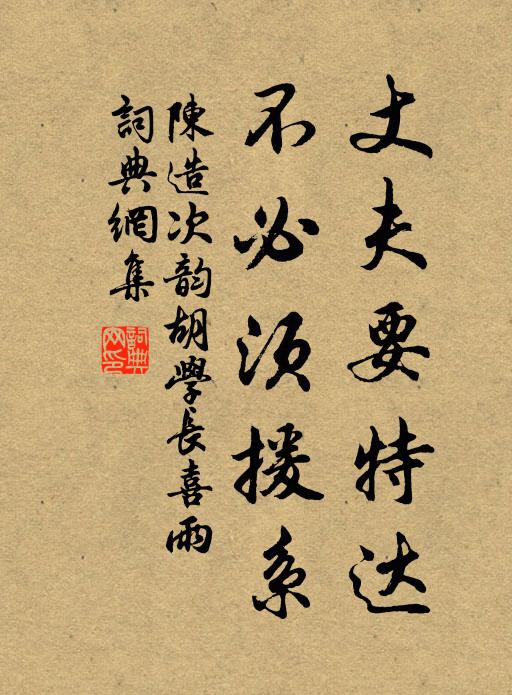 丈夫要特达
不必须援系
陳造次韵胡學長喜雨
詞典網集
詞典网印